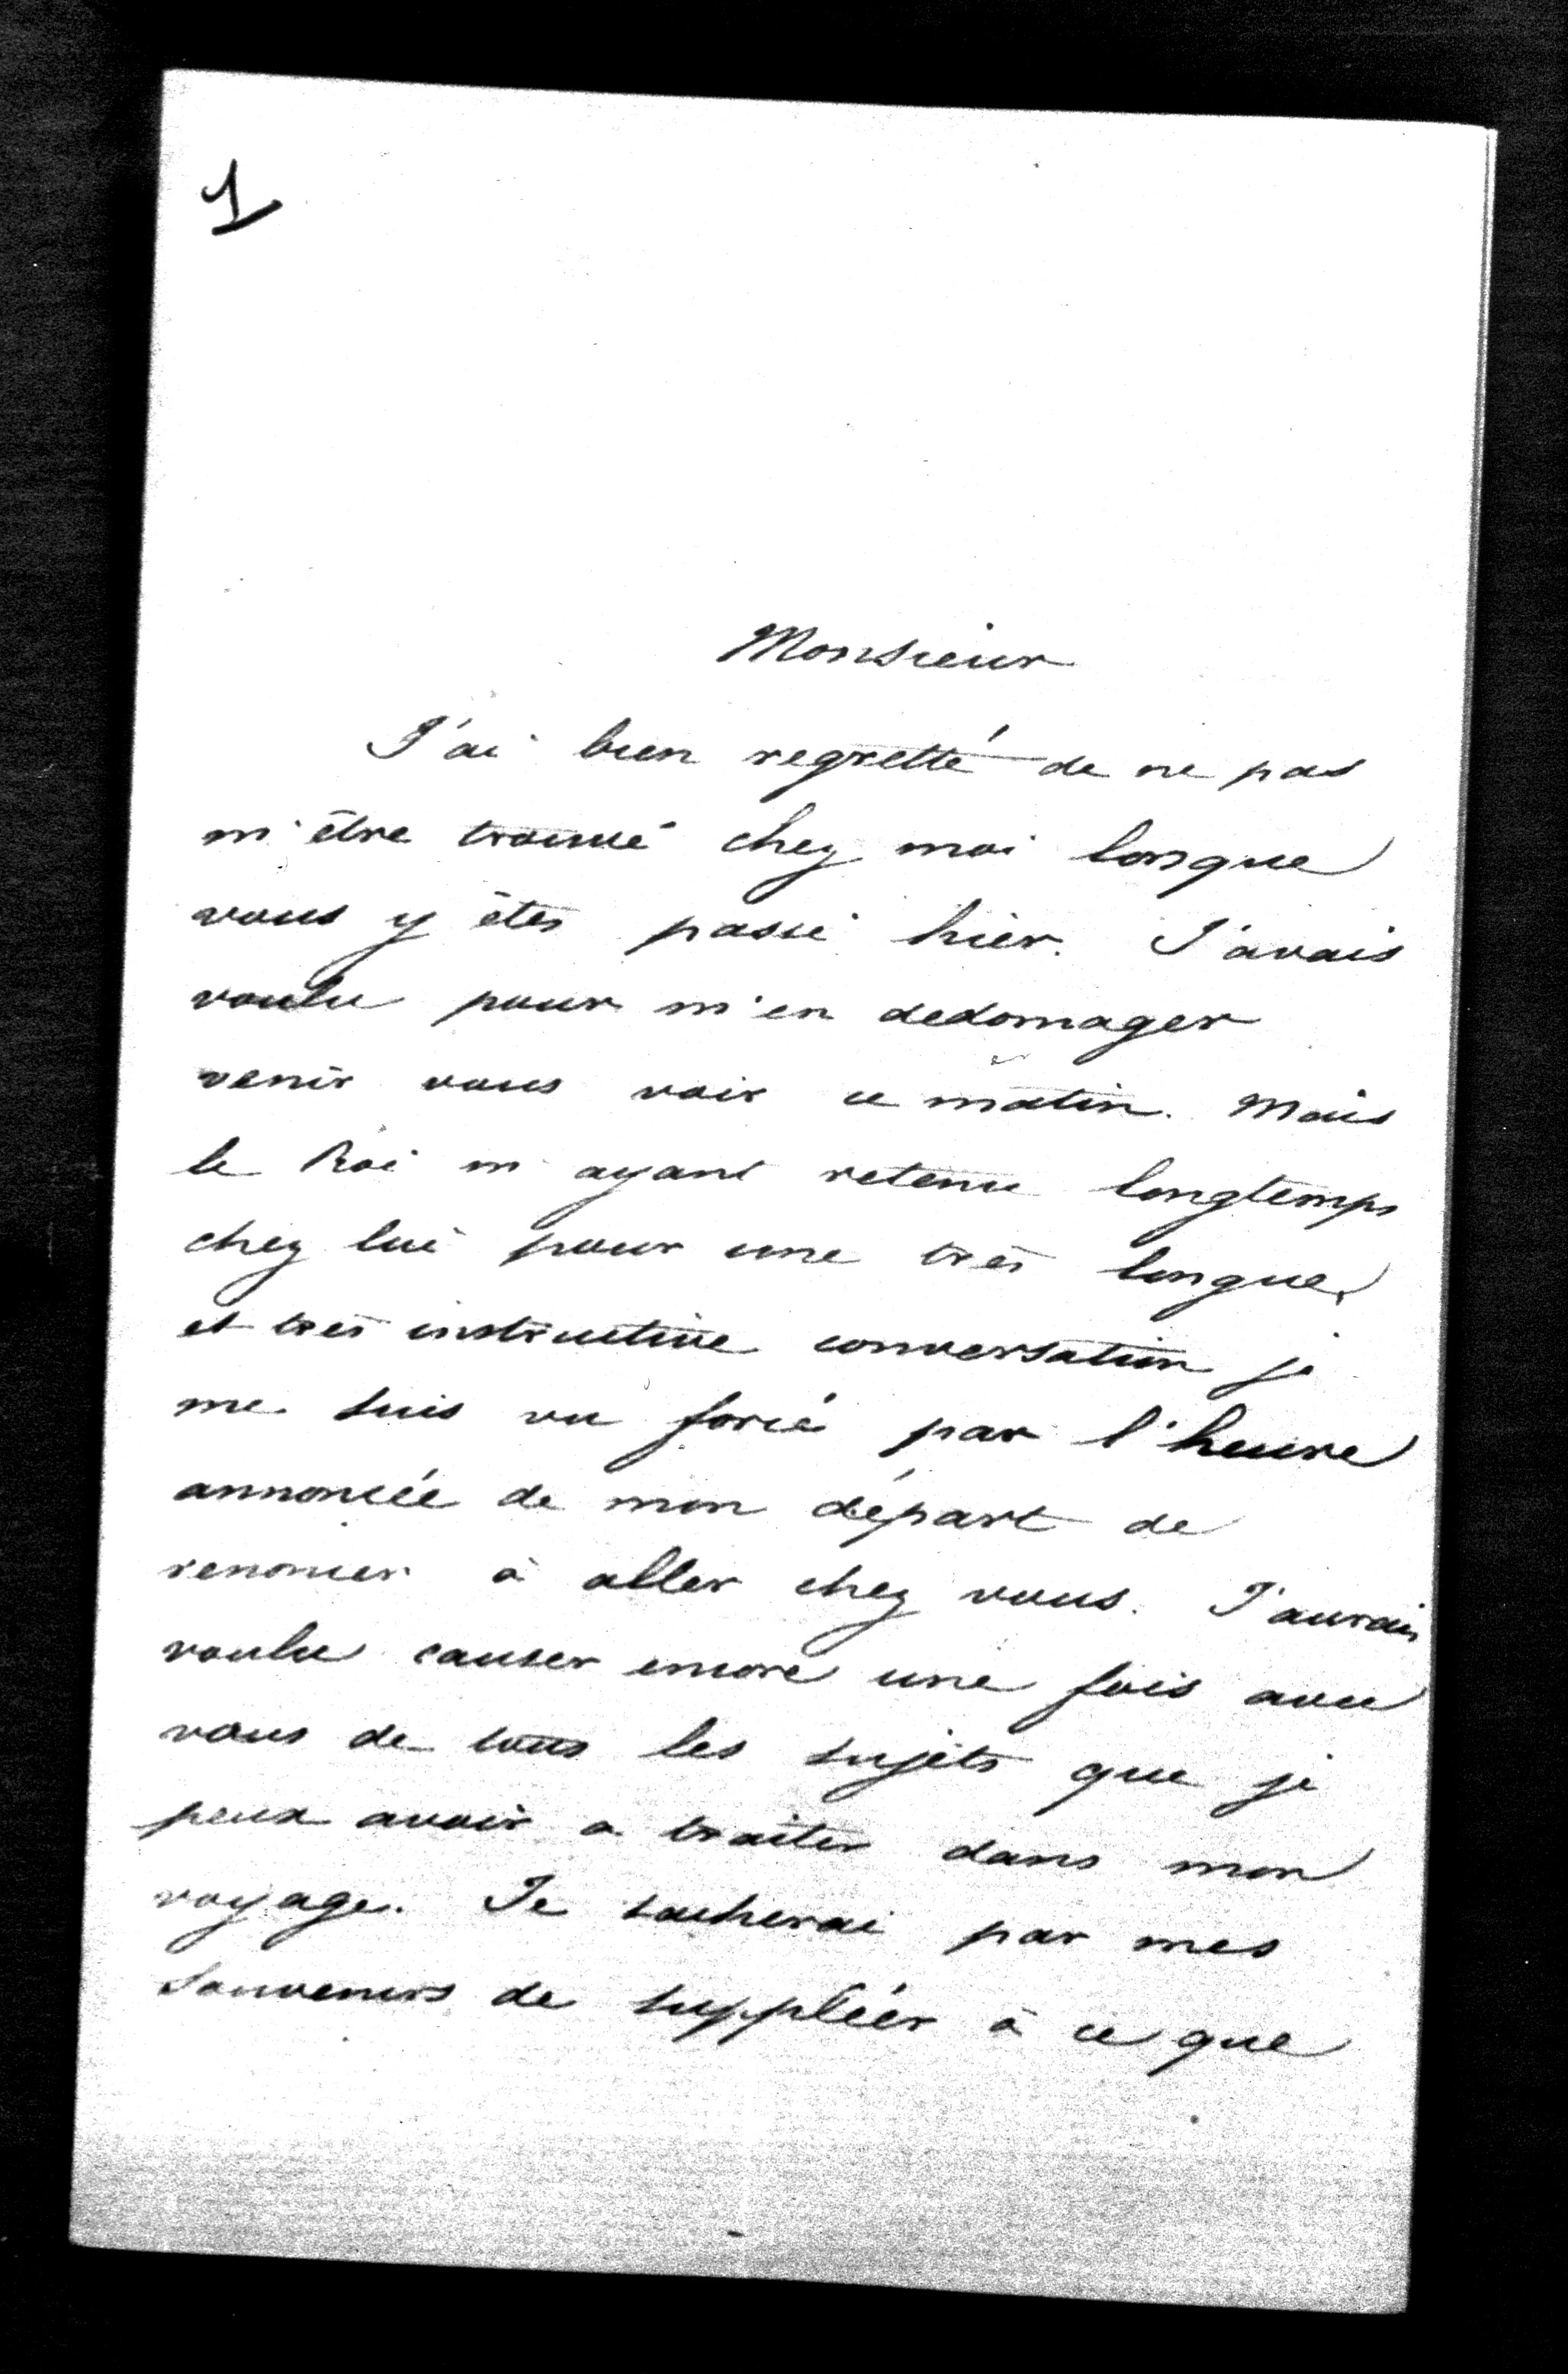 1
Monsieur
J'ai bien regretté de ne pas
m'être trouvé chez moi lorsque
vous y êtes passé hier. J'avais
voulu pour m'en dedomager
venir vous voir ce matin. Mais
le Roi m'ayant retenu longtemps
chez lui pour une très longue
et très instructive conversation je
me suis vu forcé par l'heure
annoncée de mon départ de
renoncer à aller chez vous. J'aurais
voulu causer encore une fois avec
vous de tous les sujets que je
peux avoir a traiter dans mon
voyage. Je tacherai par mes
souvenirs de suppléer à ce que